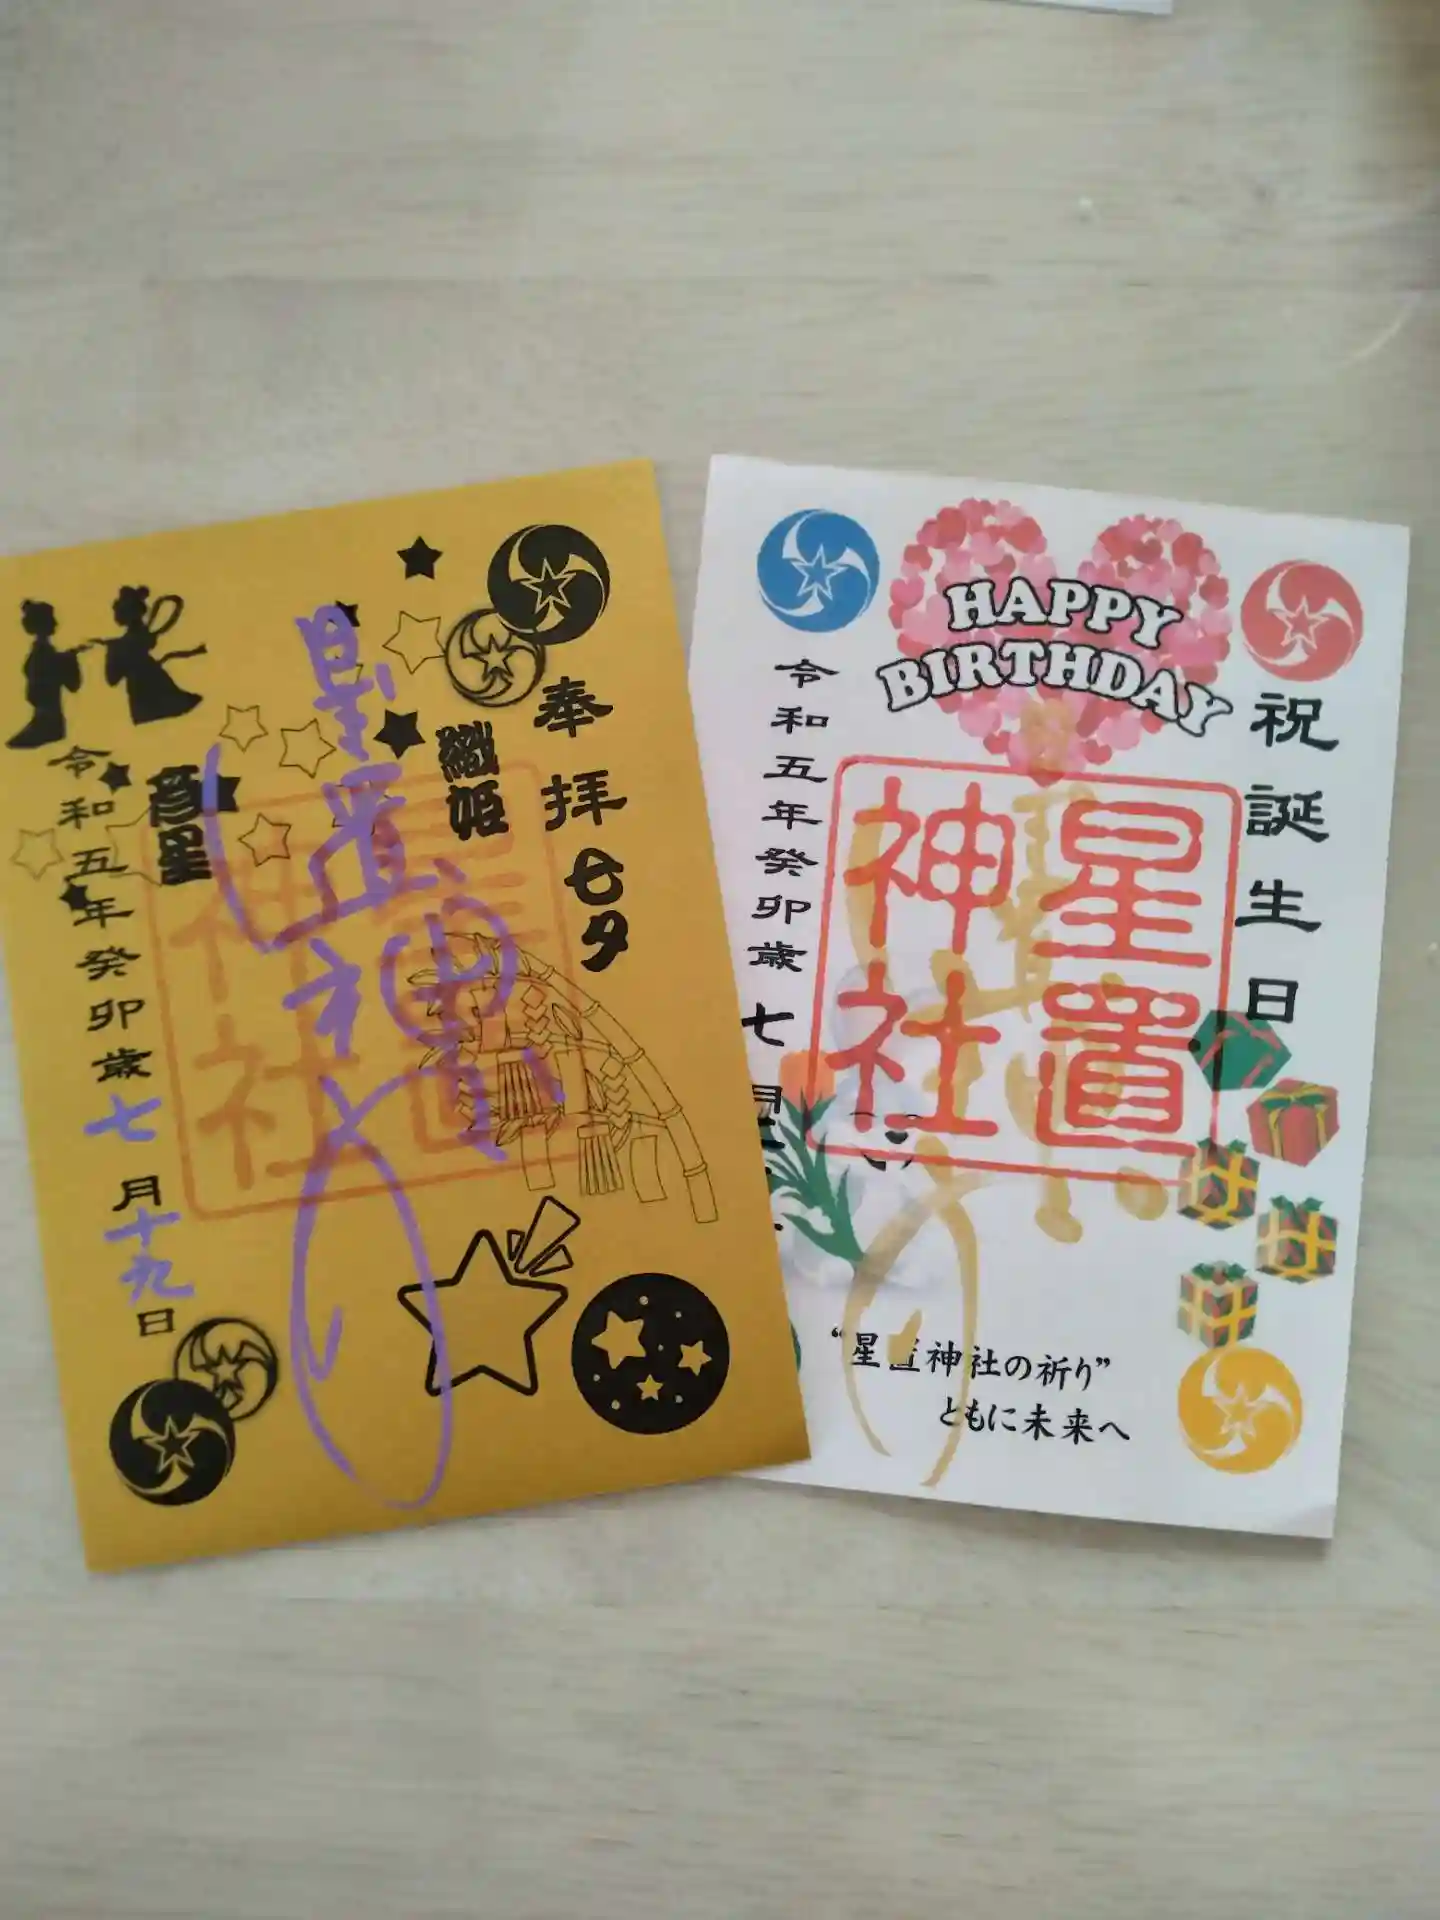 奉拝 七夕
織姫
星置神社
彦星
令和五年癸卯歳七月十九日
星置
神社
HAPPY
BIRTHDAY
祝誕生日
星置
神社
令和五年癸卯歳七月
“星置神社の祈り”
ともに未来へ